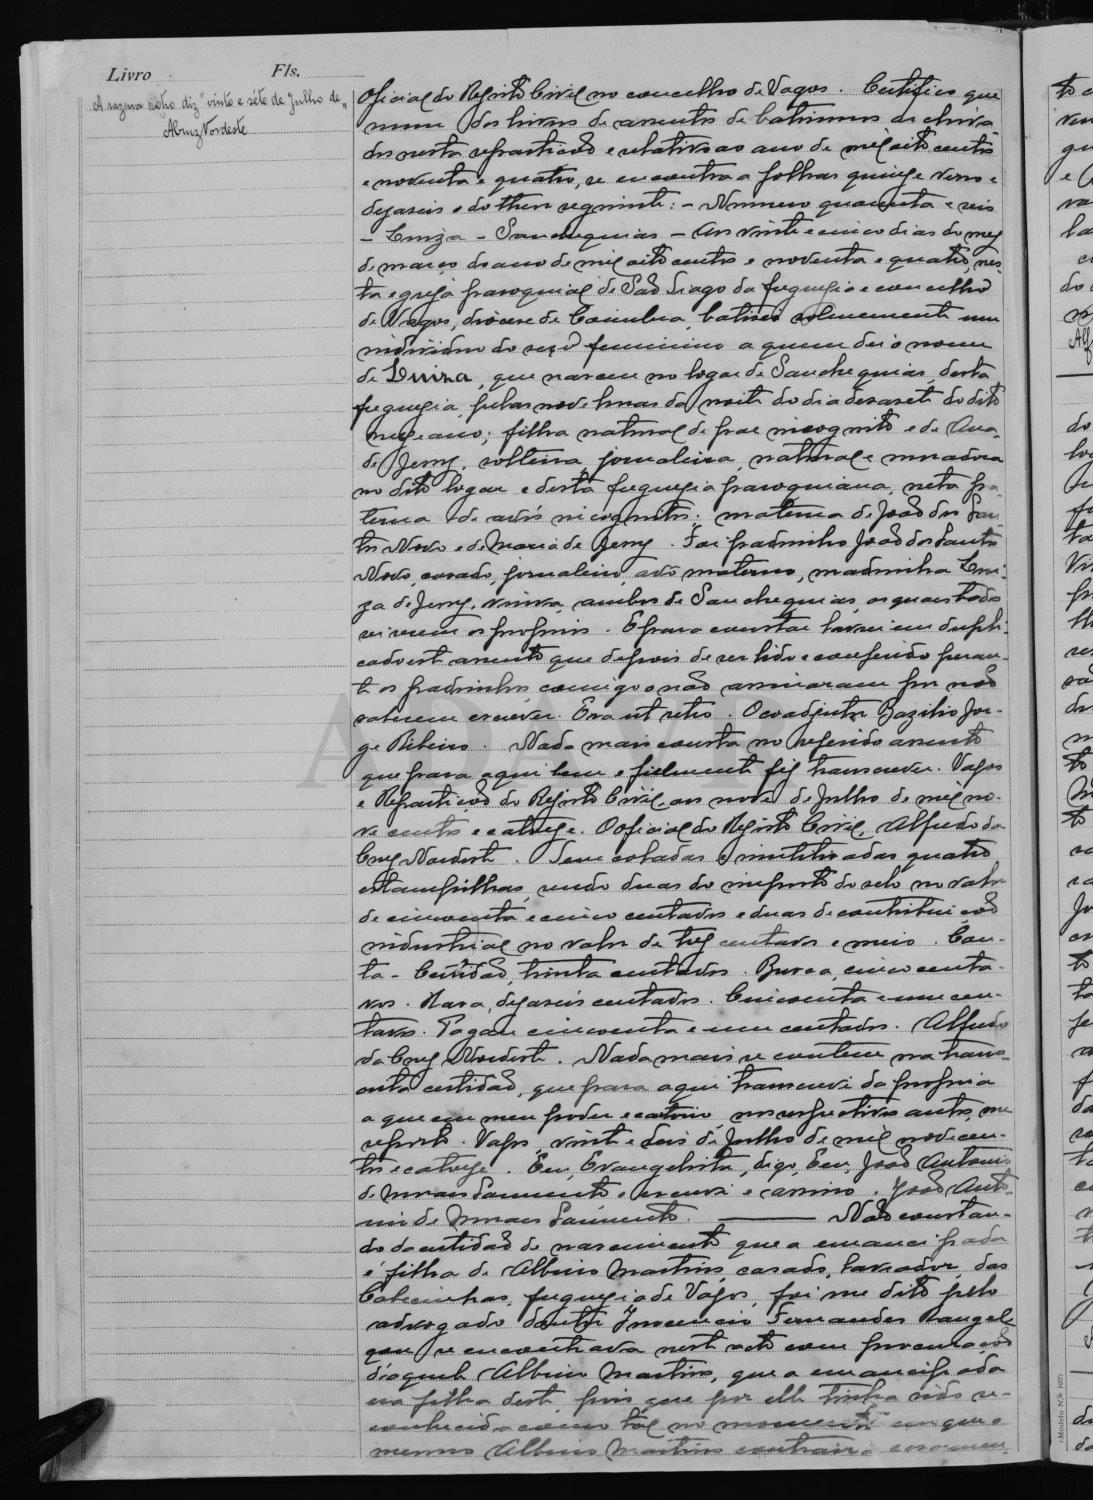 Livro Fls.
A razura retro diz "vinte e séte de Julho de"
ACruzNordeste
Oficial do Registo Civil no concelho de Vagos. Certifico que
num dos livros de assentos de batismos archiva-
dos nesta repartição e relativo ao ano de mil oito centos
e noventa e quatro, se encontra a folhas quinze verso e
dezaseis o do theor seguinte: - Numero quarenta e seis
- Luiza - Sanchequias - Aos vinte e cinco dias do mez
de março do ano de mil oito centos e noventa e quatro, nes-
ta egreja paroquial de São Tiago da freguezia e concelho
de Vagos, diocese de Coimbra, batisei solenemente um
individuo do sexo feminino a quem dei o nome
de Luiza, que nasceu no logar de Sanchequias, desta
freguezia, pelas nove horas da noite do dia dezasete do dito
mez e ano; filha natural de pae incognito e de Ana
de Jesus, solteira, jornaleira, natural e moradora
no dito logar e desta freguezia, paroquiana, neta pa-
terna de avós incognitos; materna de João dos San-
tos Novo e de Maria de Jesus. Foi padrinho João dos Santos
Novo, casado, jornaleiro, avô materno, madrinha Lui-
za de Jesus, viuva, ambos de Sanchequias, os quaes todos
sei serem os proprios. E para constar lavrei em dupli-
cado este assento que depois de ser lido e conferido peran-
te os padrinhos, comigo o não assinaram por não
saberem escrever. Era ut retro. O coadjutor Bazilio Jor-
ge Ribeiro. Nada mais consta no referido assento
que para aqui bem e fielmente fiz transcrever. Vagos
e Repartição do Registo Civil, aos nove de Julho de mil no-
ve centos e catorze. O oficial do Registo Civil, Alfredo da
Cruz Nordeste. Tem coladas e inutilisadas quatro
estampilhas, sendo duas do imposto do selo no valor
de cincoenta e cinco centavos e duas de contribuição
industrial no valor de tres centavos e meio. Con-
ta - Certidão, trinta centavos. Busca, cinco centa-
vos. Raza, dezaseis centavos. Cincoenta e um cen-
tavos. Pagou cincoenta e um centavos. Alfredo
da Cruz Nordeste. Nada mais se contem na trans-
crita certidão, que para aqui transcrevi da propria
a que em meu poder e cartorio, nos respectivos autos, me
reporto. Vagos, vinte e dois de Julho de mil novecen-
tos e catorze. Eu, Evangelista, digo, Eu, João Antonio
de Moraes Sarmento o escrevi e assino. João Anto-
nio de Moraes Sarmento. Não constan-
do da certidão de nascimento que a emancipada
é filha de Albino Martins, casado, lavrador, das
freguezia de Vagos, foi me dito pelo
advogado doutor Inocencio Fernandes Rangel
que se encontrava neste acto com procuração
d'aquele Albino Martins, que a emancipada
era filha deste, pois que por elle tinha sido re-
conhecida como tal no momento em que o
mesmo Albino Martins contraira casamen-